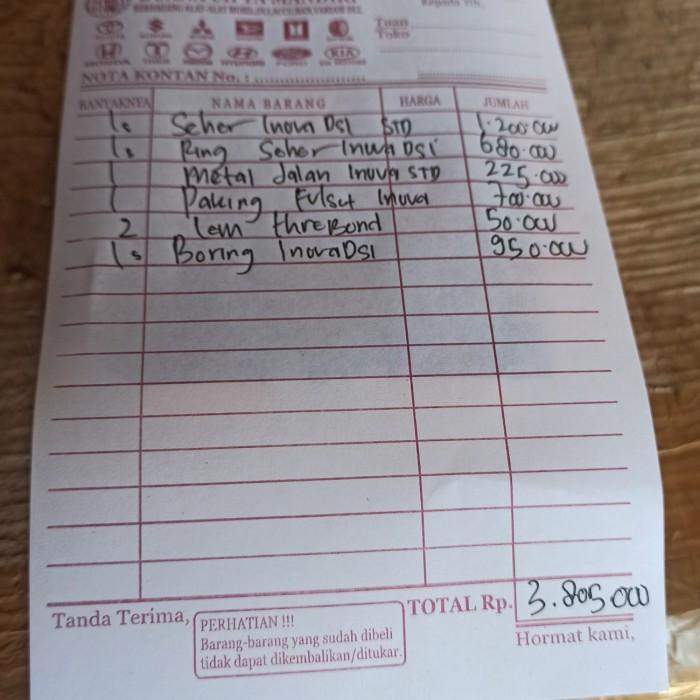 Kepada Yth.
Tuan
Toko
HONDA
HYUNDAI
FORD
KIA
NOTA KONTAN No. :
BANYAKNYA NAMA BARANG HARGA JUMLAH
1s Seher Inova Dsl STD 1.200.000
1s Ring Seher Inova Dsl 680.000
1 Metal Jalan Inova STD 225.000
1 Paking Fulset Inova 700.000
2 lem threbond 50.000
1s Boring Inova Dsl 950.000
TOTAL Rp. 3.805.000
Tanda Terima,
PERHATIAN !!!
Barang-barang yang sudah dibeli
tidak dapat dikembalikan/ditukar.
Hormat kami,